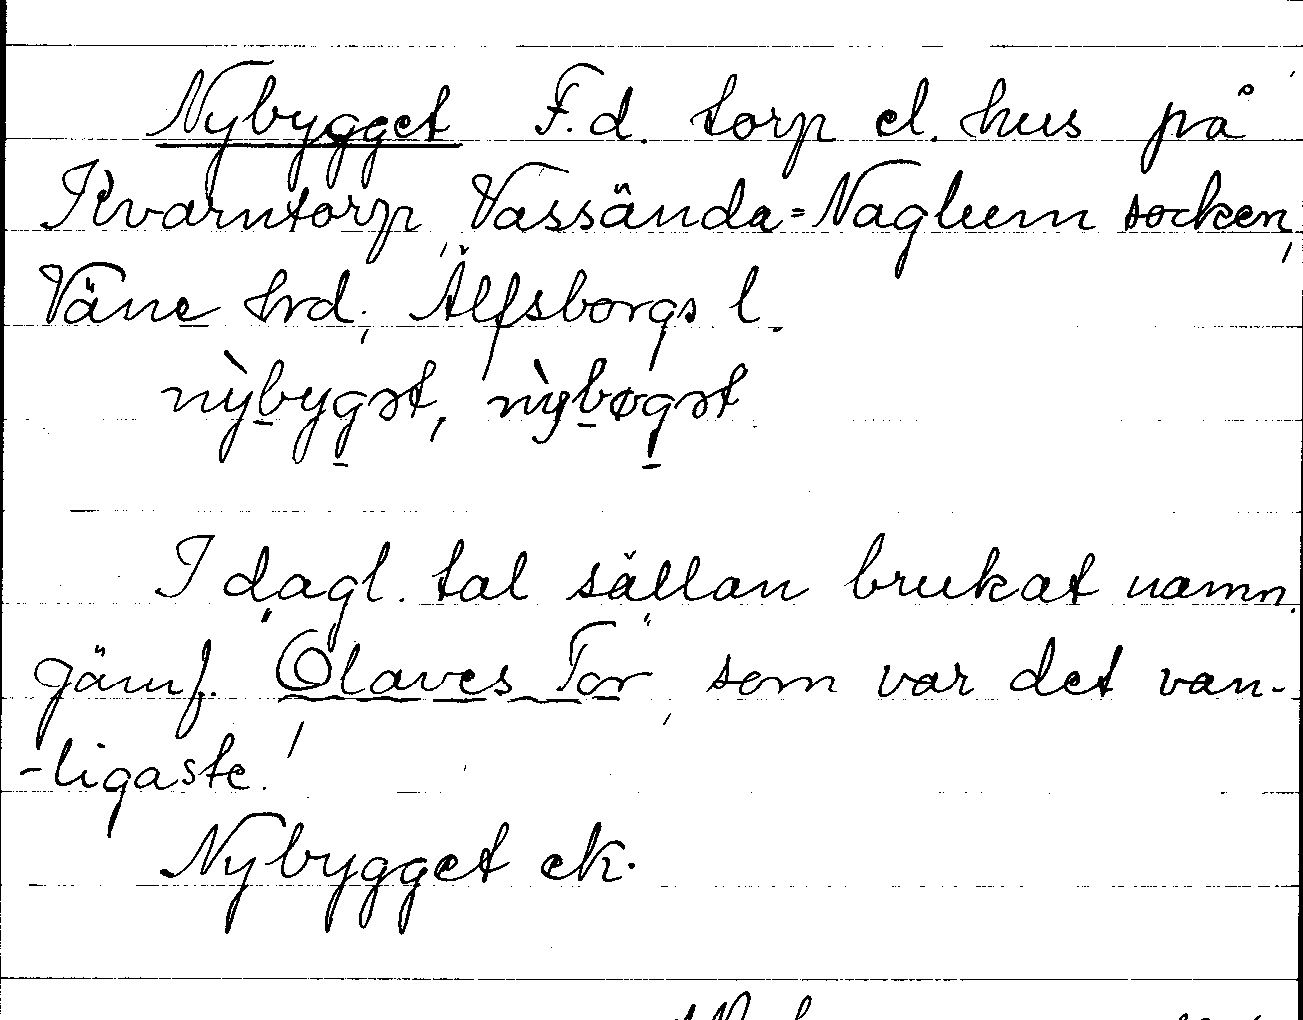 Nybygget F.d. torp el. hus på
Kvarntorp, Vassända-Naglum socken,
Väne hrd, Älfsborgs l.
nỳbygət, nỳbøgət
I dagl. tal sällan brukat namn.
jämf. "Olaves Tor", som var det van-
-ligaste!
Nybygget ek.